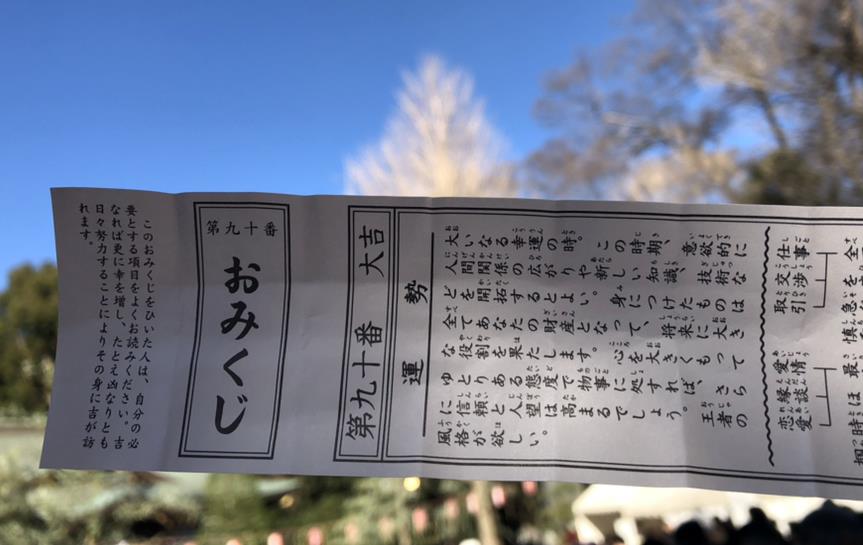 このおみくじをひいた人は、自分の必
要とする項目をよくお読みください。吉
なれば更に幸を増し、たとえ凶なりとも
日々努力することによりその身に吉が訪
れます。
第九十番
おみくじ
第九十番
大吉
運勢
大いなる幸運の時。この時期、意欲的に
人間関係の広がりや新しい知識、技術な
どを開拓するとよい。身につけたものは
全てあなたの財産となって、将来に大き
な役割を果たします。心を大きくもって
ゆとりある態度で物事に処すれば、さら
に信頼と人望は高まるでしょう。王者の
風格が欲しい。
仕事
交渉
取引
愛情
縁談
恋愛